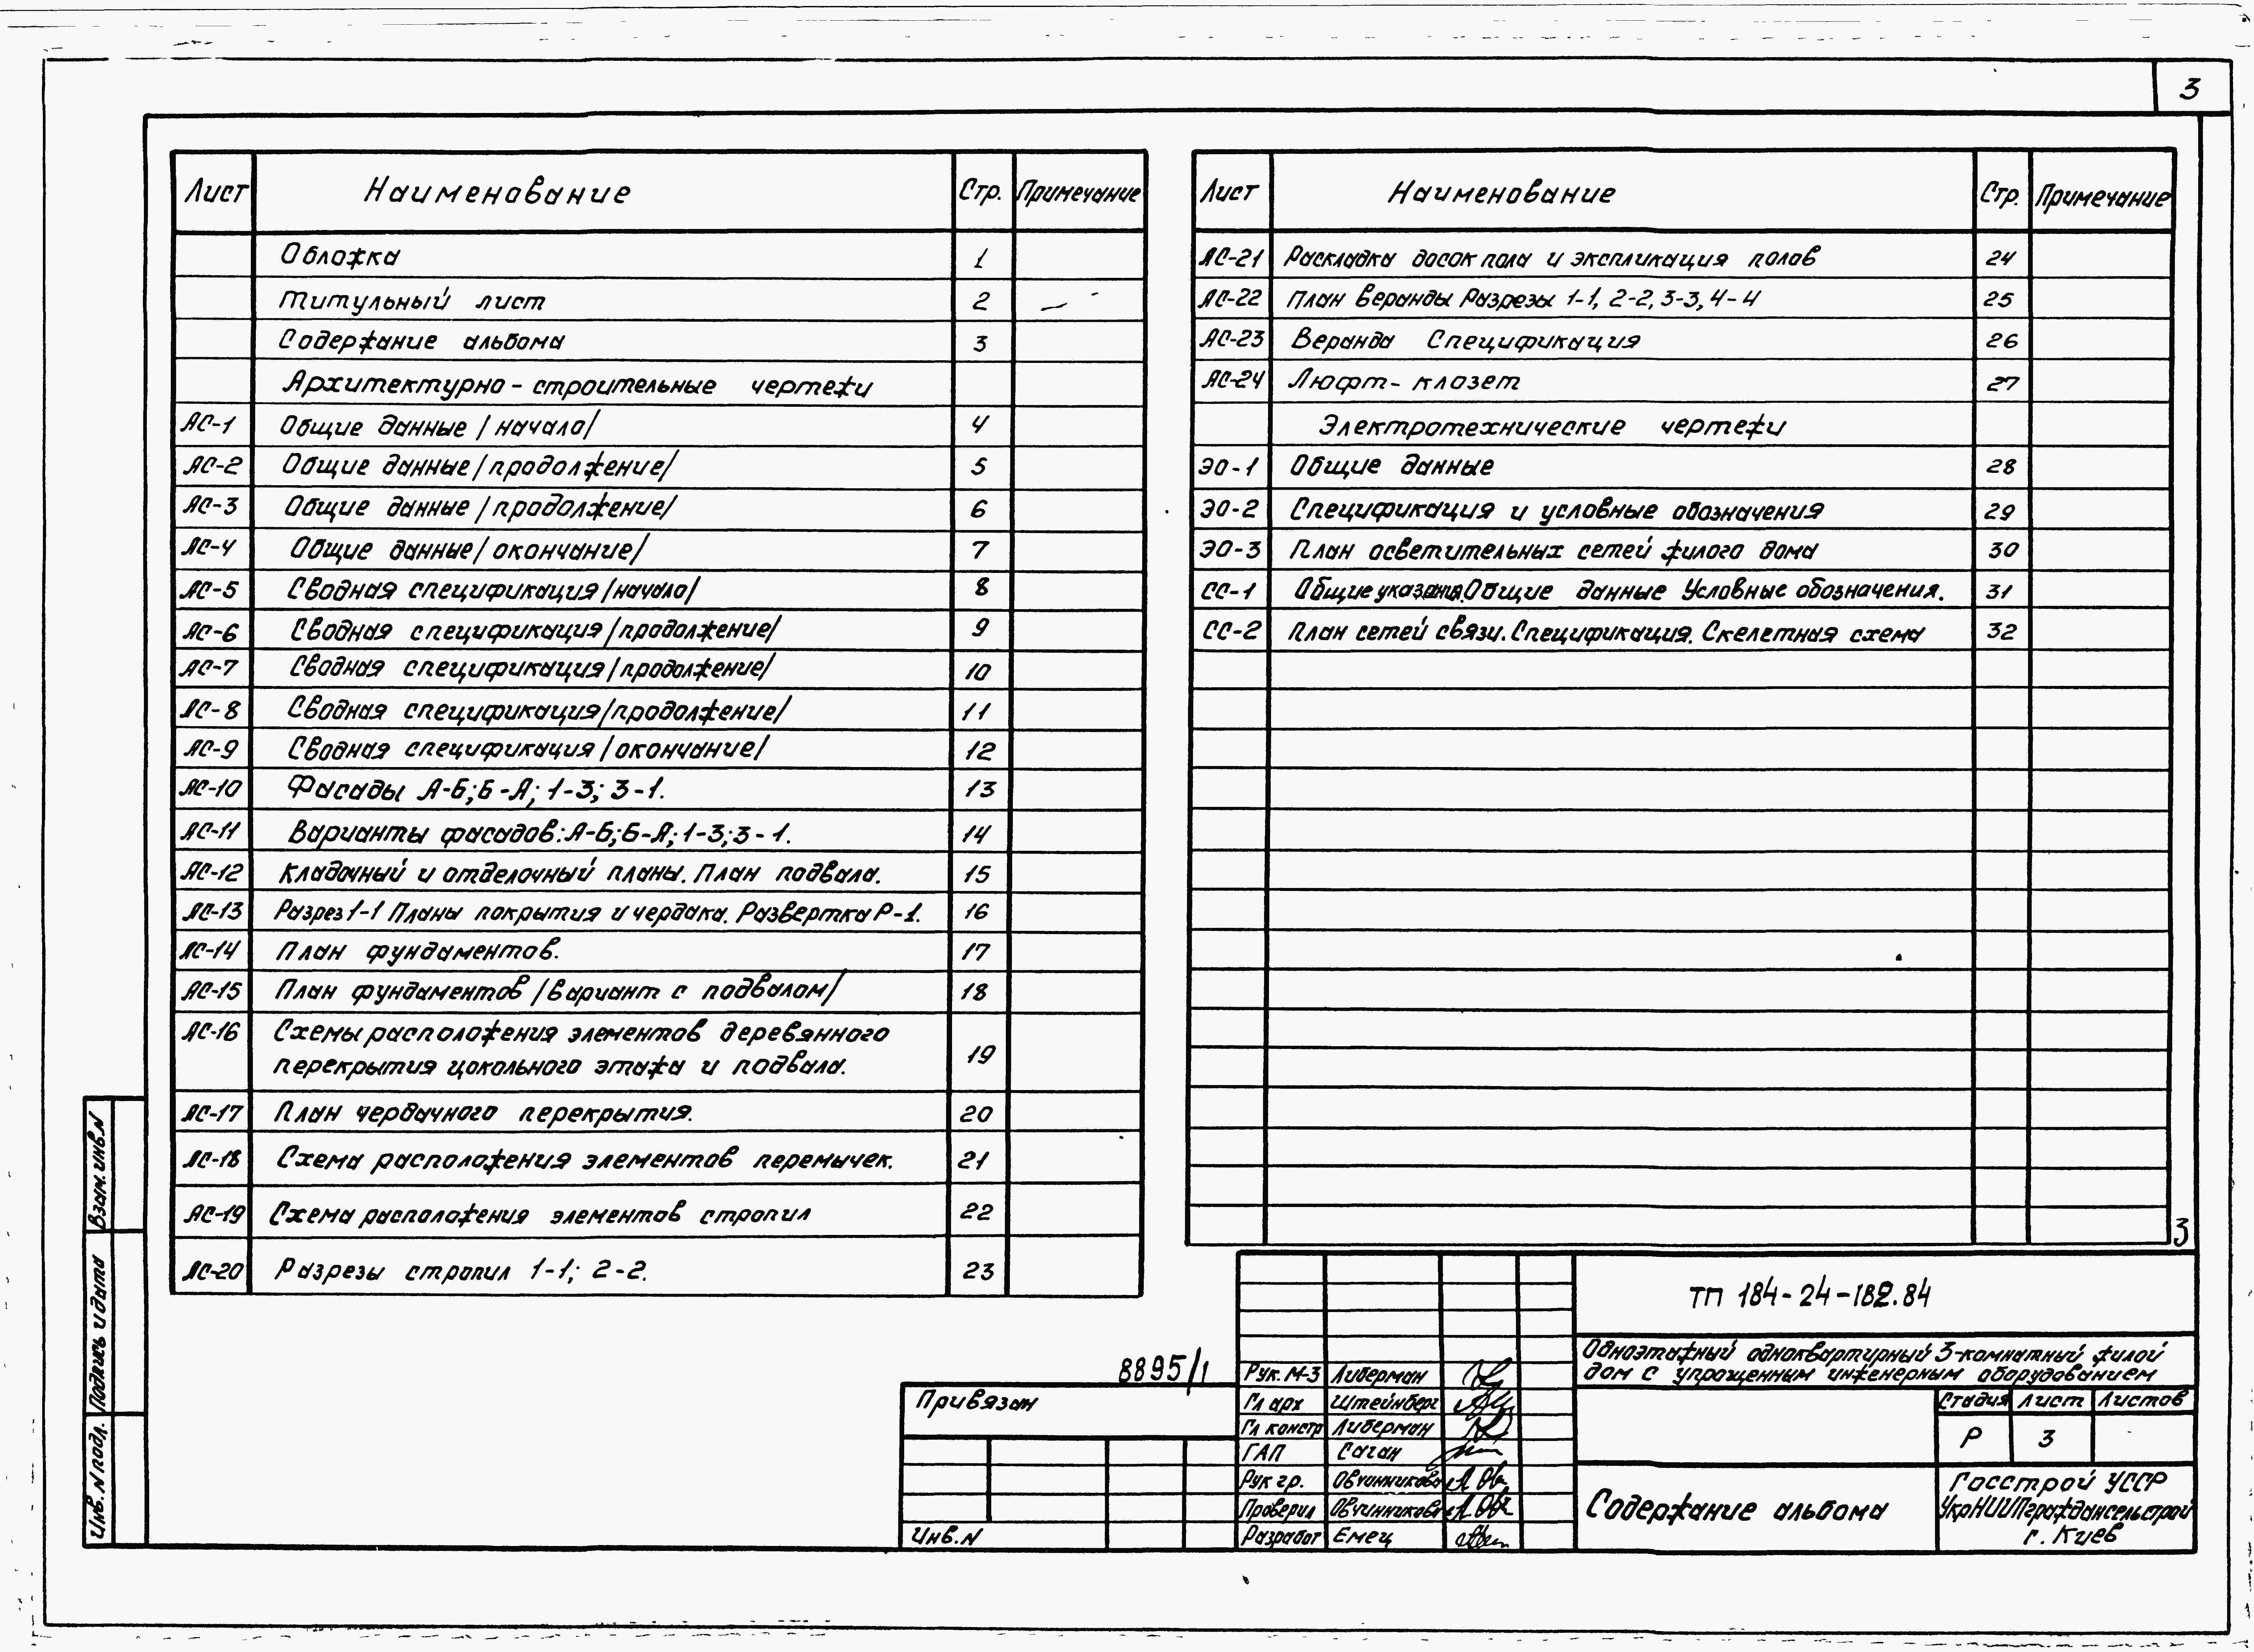 3
Лист Наименование Стр. Примечание
Обложка 1
Титульный лист 2
Содержание альбома 3
Архитектурно-строительные чертежи
АС-1 Общие данные /начало/ 4
АС-2 Общие данные /продолжение/ 5
АС-3 Общие данные /продолжение/ 6
АС-4 Общие данные /окончание/ 7
АС-5 Сводная спецификация /начало/ 8
АС-6 Сводная спецификация /продолжение/ 9
АС-7 Сводная спецификация /продолжение/ 10
АС-8 Сводная спецификация /продолжение/ 11
АС-9 Сводная спецификация /окончание/ 12
АС-10 Фасады А-Б; Б-А; 1-3; 3-1. 13
АС-11 Варианты фасадов: А-Б; Б-А; 1-3; 3-1. 14
АС-12 Кладочный и отделочный планы. План подвала. 15
АС-13 Разрез 1-1 Планы покрытия и чердака. Развертка Р-1. 16
АС-14 План фундаментов. 17
АС-15 План фундаментов /вариант с подвалом/ 18
АС-16 Схемы расположения элементов деревянного
перекрытия цокольного этажа и подвала. 19
АС-17 План чердачного перекрытия. 20
АС-18 Схема расположения элементов перемычек. 21
АС-19 Схема расположения элементов стропил 22
АС-20 Разрезы стропил 1-1; 2-2. 23
Лист Наименование Стр. Примечание
АС-21 Раскладка досок пола и экспликация полов 24
АС-22 План веранды Разрезы 1-1, 2-2, 3-3, 4-4 25
АС-23 Веранда Спецификация 26
АС-24 Люфт-клозет 27
Электротехнические чертежи
ЭО-1 Общие данные 28
ЭО-2 Спецификация и условные обозначения 29
ЭО-3 План осветительных сетей жилого дома 30
СС-1 Общие указания. Общие данные Условные обозначения. 31
СС-2 План сетей связи. Спецификация. Скелетная схема 32
3
Взам. инв. N
Подпись и дата
Инв. N подл.
8895/1
Привязан
Инв. N
Рук. М-3 Либерман
Гл арх Штейнберг
Гл констр Либерман
ГАП Саган
Рук гр. Овчинникова
Проверил Овчинникова
Разработ Емец
ТП 184-24-182.84
Одноэтажный одноквартирный 3-комнатный жилой
дом с упрощенным инженерным оборудованием
Стадия Лист Листов
Р 3
Содержание альбома
Госстрой УССР
УкрНИИПграждансельстрой
г. Киев